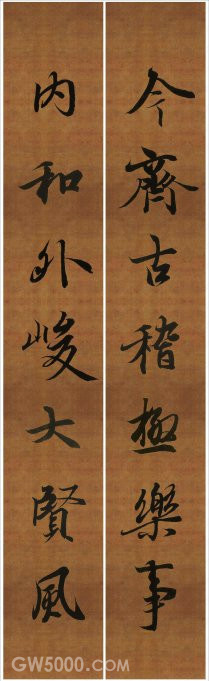 今齊古稽極樂事
内和外峻大賢風
GW5000.COM